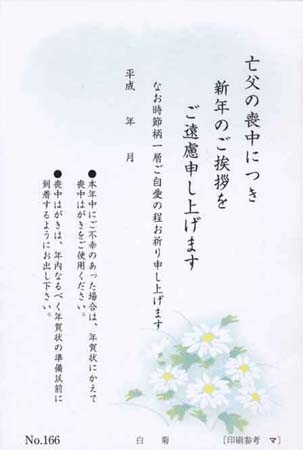 亡父の喪中につき
新年のご挨拶を
ご遠慮申し上げます
なお時節柄一層ご自愛の程お祈り申し上げます
平成　年　月
●本年中にご不幸のあった場合は、年賀状にかえて
喪中はがきをご使用ください。
●喪中はがきは、年内なるべく年賀状の準備以前に
到着するようにお出し下さい。
No.166
白菊
［印刷参考　マ］